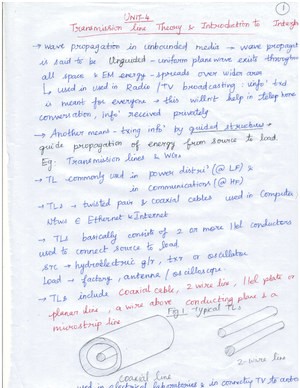 1
UNIT-4
Transmission line Theory & Introduction to Integra
→ wave propagation in unbounded media – wave propagat
is said to be Unguided – uniform plane wave exists throughou
all space & EM energy – spreads over wider area
↳ used in used in Radio / TV broadcasting : info' txd
is meant for everyone → this will n't help in telephone
conversation, info' received privately
→ Another means – txing info' by guided structures →
guide propagation of energy from source to load
Eg: Transmission lines & WGs
→ TL – commonly used in power distri' (@ LF) &
in communications (@ HF)
→ TLs – twisted pair & coaxial cables used in Computer
N/ws ∈ Ethernet & Internet
→ TLs basically consists of 2 or more llel conductors
used to connect source to load
src → hydroelectric g/r, txr or oscillator
load → factory, antenna / oscilloscope
→ TLs include Coaxial cable, 2 wire line, llel plate or
planar line, a wire above conducting plane & a
microstrip line
Fig 1 Typical TLs
coaxial line
2-wire line
used in electrical laboratories & in connectg TV to ante